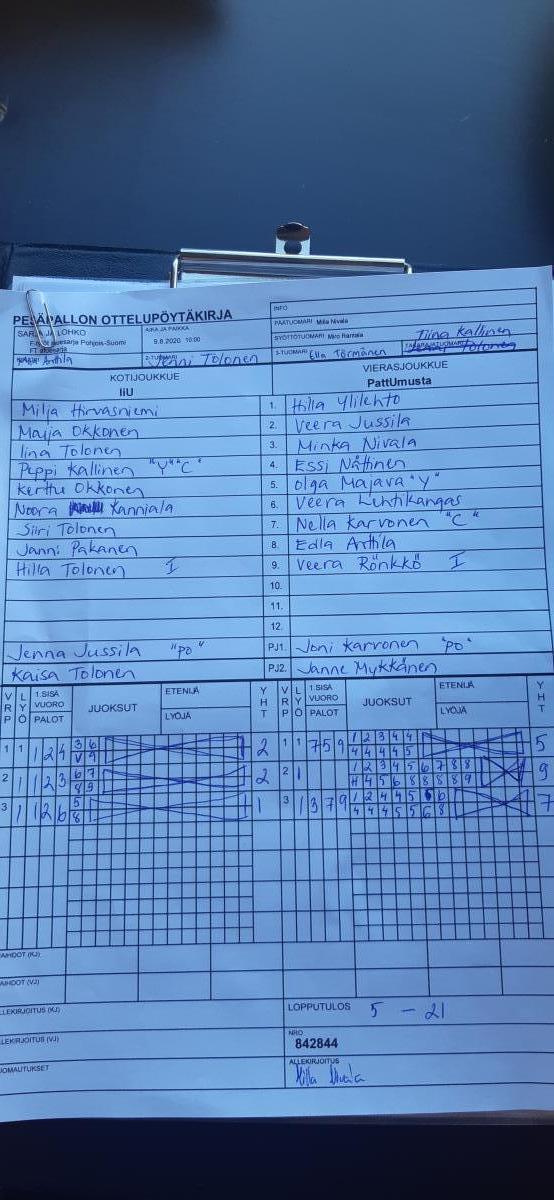 PESÄPALLON OTTELUPÖYTÄKIRJA
INFO
SARJA JA LOHKO
AIKA JA PAIKKA
9.8.2020 10:00
PÄÄTUOMARI Milla Nivala
SYÖTTÖTUOMARI Miro Rantala
Tiina Kallinen
2-TUOMARI Jenni Tolonen
3-TUOMARI Ella Törmänen
TAKARAJATUOMARI
KOTIJOUKKUE
VIERASJOUKKUE
IiU
PattUmusta
Milja Hirvasniemi 1. Hilla Ylilehto
Maija Okkonen 2. Veera Jussila
Iina Tolonen 3. Minka Nivala
Peppi Kallinen "Y" "C" 4. Essi Nättinen
Kerttu Okkonen 5. Olga Majava "Y"
Noora Kanniala 6. Veera Lehtikangas
Siiri Tolonen 7. Nella Karvonen "C"
Janni Pakanen 8. Edla Anttila
Hilla Tolonen I 9. Veera Rönkkö I
10.
11.
12.
Jenna Jussila "PO" PJ1. Joni Karvonen "PO"
Kaisa Tolonen PJ2. Janne Mykkänen
VRP LYÖ 1.SISÄVUORO PALOT JUOKSUT ETENIJÄ LYÖJÄ YHT VRP LYÖ 1.SISÄVUORO PALOT JUOKSUT ETENIJÄ LYÖJÄ YHT
1 1 1 2 4 3 6 2 1 1 7 5 9 1 2 3 4 4 5
4 4 4 4 5
2 1 1 2 3 6 7 2 2 1 1 2 3 4 5 6 7 8 8 9
8 9 4 4 5 6 8 8 8 8 9
3 1 1 2 6 5 1 3 1 3 7 9 1 2 4 4 5 6 6 7
8 4 4 4 5 5 6 8
VAIHDOT (KJ)
VAIHDOT (VJ)
ALLEKIRJOITUS (KJ)
LOPPUTULOS 5 - 21
ALLEKIRJOITUS (VJ)
NRO
842844
HUOMAUTUKSET
ALLEKIRJOITUS